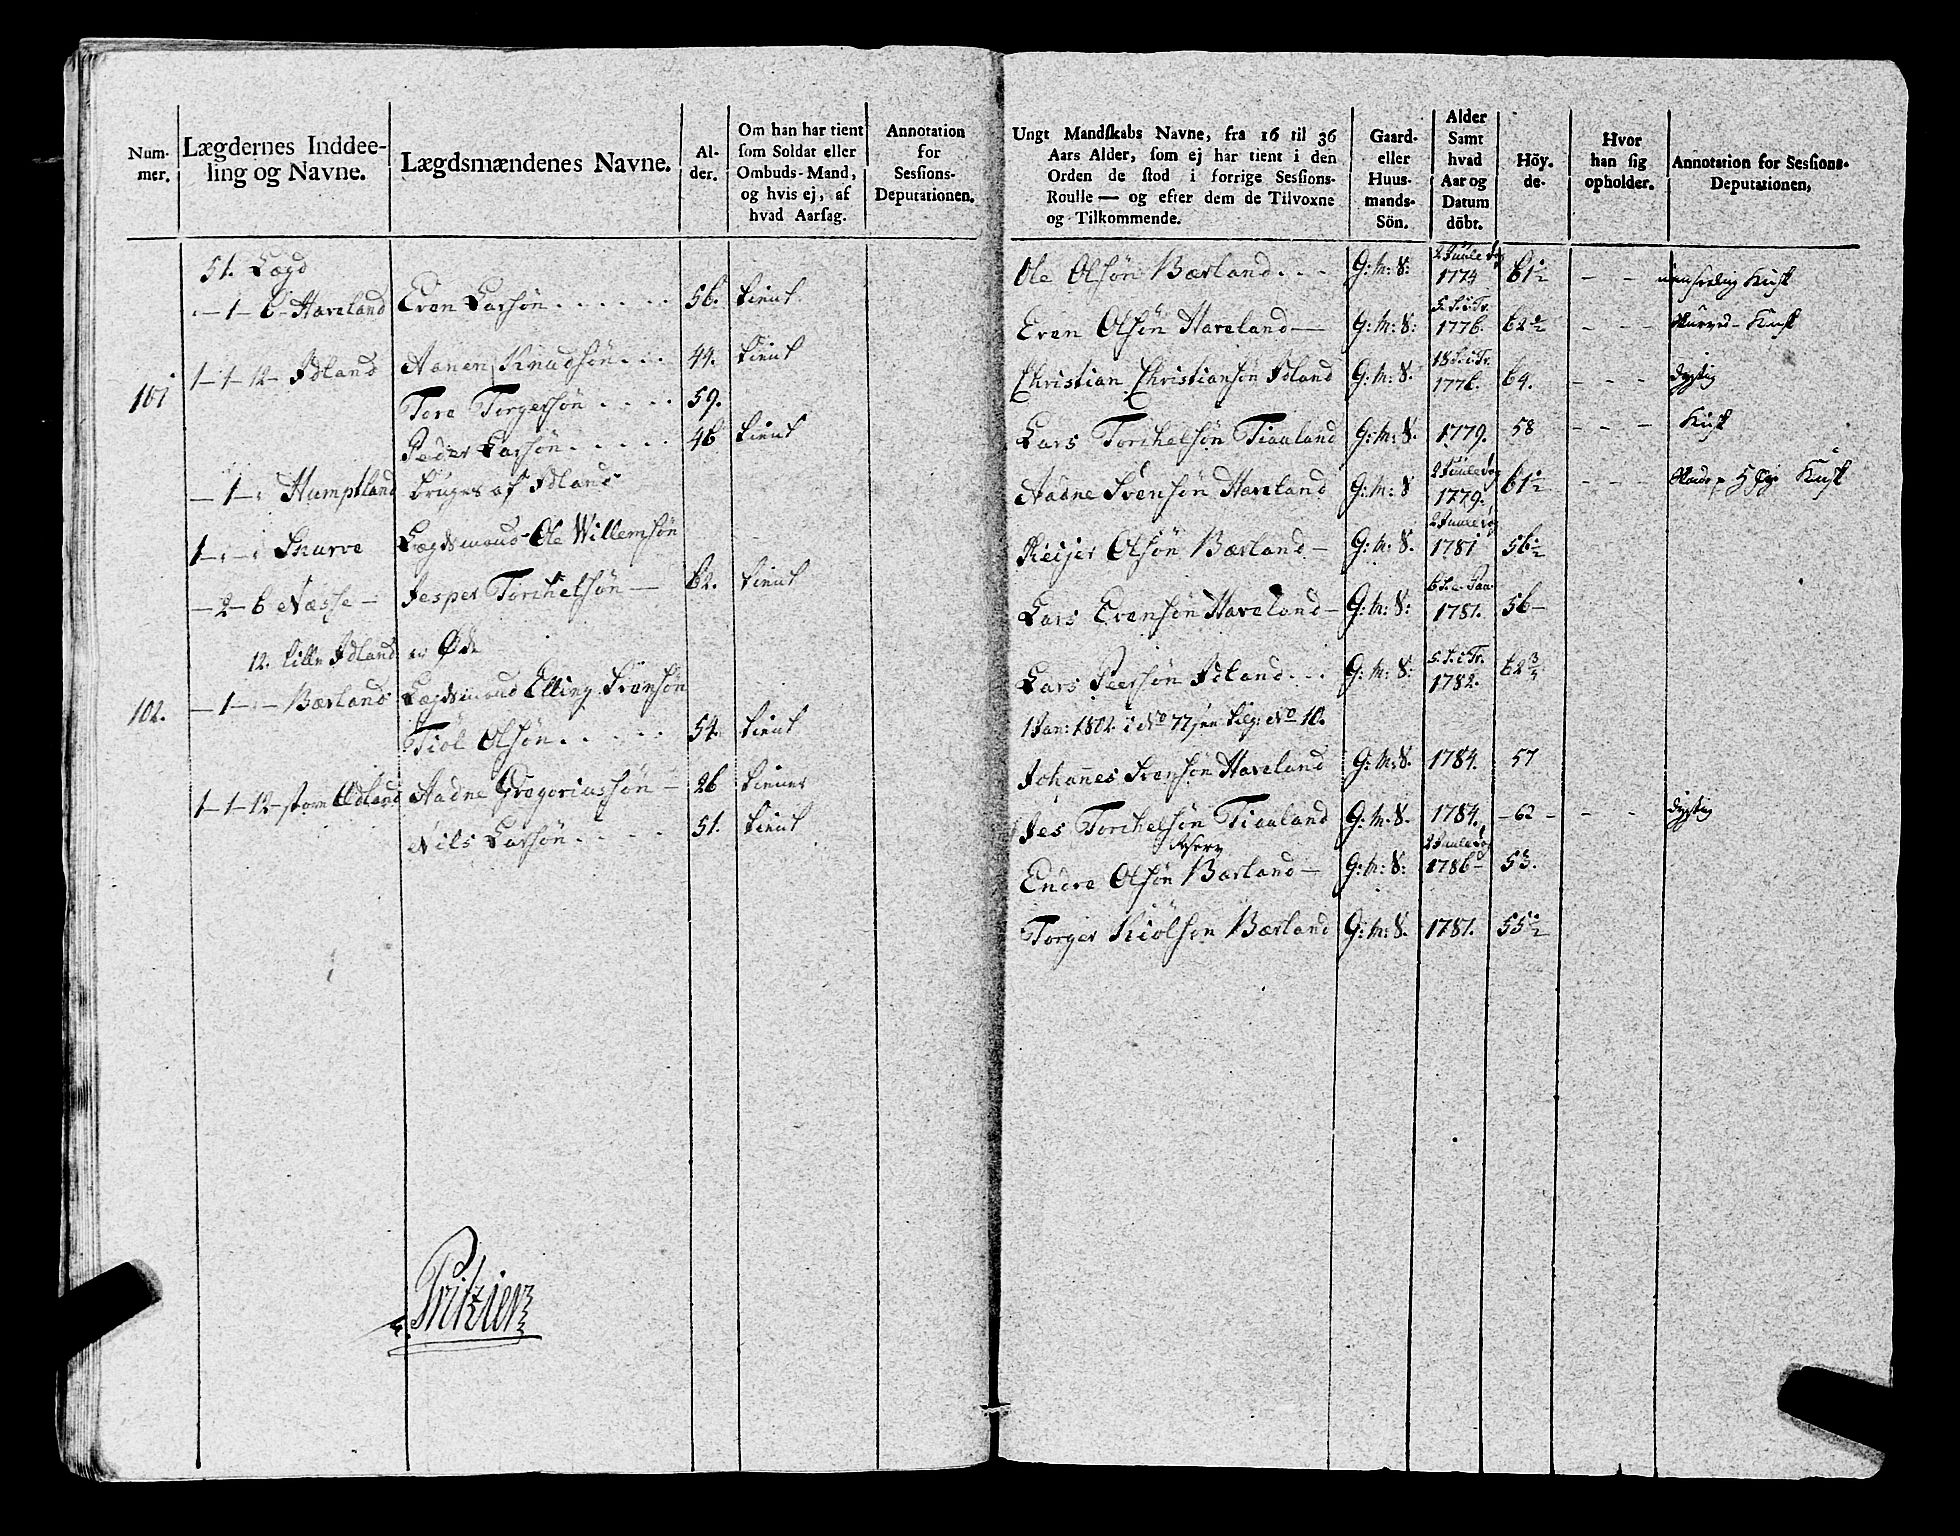 Num-
mer.
Lægdernes Inddee-
ling og Navne.
Lægdsmændenes Navne.
Al-
der.
Om han har tient
som Soldat eller
Ombuds-Mand,
og hvis ej, af
hvad Aarsag.
Annotation
for
Sessions-
Deputationen.
51. Lægd
-1-6- Haveland Even Larsøn 56. tient
1-1-12- Idland Aanen Knudsøn 44. tient
101
Tore Torgersøn 59.
Peder Larsøn 46 tient
-1- Humpland bruges af Idland
1- Skurve Lægdsmand Ole Willemsøn
-2-6 Næsse - Jesper Torchelsøn 62. tient
12. lille Idland er Øde
102. -1- Bærland Lægdsmand Elling Svensøn
Tiøl Olsøn 54. tient
1-1-12- store Ødland Aadne Gregoriussøn 26 tiener
Nils Larsøn 51. tient
Pritzier
Ungt Mandskabs Navne, fra 16 til 36
Aars Alder, som ej har tient i den
Orden de stod i forrige Sessions-
Roulle — og efter dem de Tilvoxne
og Tilkommende.
Gaard-
eller
Huus-
mands-
Sön.
Alder
Samt
hvad
Aar og
Datum
döbt.
Höy-
de.
Hvor
han sig
opholder.
Annotation for Sessions-
Deputationen,
Ole Olsøn Bærland G:M:S: 2 Juuledag 1774 61½ - - Kusk
Even Olsøn Haveland G:M:S: 5. S. i Tr. 1776. 62½ - - - Kusk
Christian Christiansøn Idland G:M:S. 18 S. i Tr. 1776. 64. - - - dygtig
Lars Torchelsøn Tiauland G:M:S. 1779. 58 - - - Kusk
Aadne Svensøn Haveland G:M:S 2 Juuledag 1779. 61½ - - - Kusk
Reijer Olsøn Bærland G:M:S. 2 Juuledag 1781 56½
Lars Evensøn Haveland G:M:S: 1781. 56-
Lars Peersøn Idland G:M:S: 5. S. i Tr. 1782. 62¾
1 Jan: 1802. i No 77 Litg: No 10.
Johannes Svensøn Haveland G:M:S. 1784. 57
Jes Torchelsøn Tiauland G:M:S. 1784. -62- - - dygtig
Endre Olsøn Bærland G:M:S: 2 Juuledag 1786 53.
Torger Kiölsøn Bærland G:M:S. 1787. 55½